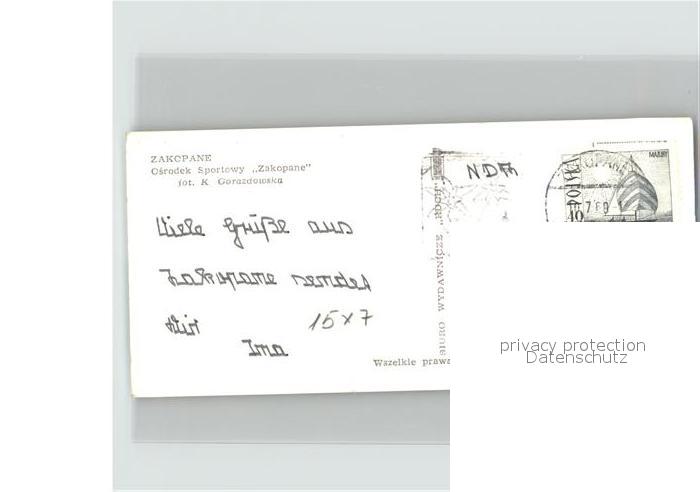 ZAKOPANE
Ośrodek Sportowy „Zakopane"
fot. K. Gorazdowska
Viele Grüße aus
Zakopane sendet
dir
Ina
15x7
Wszelkie prawa
BIURO WYDAWNICZE „RUCH"
MAZURY
POLSKA
privacy protection
Datenschutz